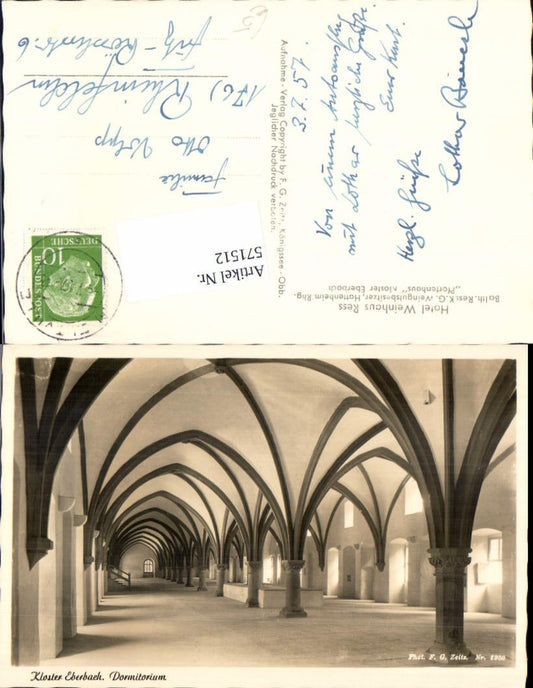 Hotel Weinhaus Ress
Balth. Ress K. G. -Weingutsbesitzer, Hattenheim Rhg.
"Pfortenhaus" Kloster Eberbach
3.7.57.
Von einem Autoausflug
mit Lothar herzliche Grüße
Euer Kurt.
Herzl. Grüße
Lothar
Aufnahme - Verlag Copyright by F. G. Zeitz, Königssee - Obb.
Jeglicher Nachdruck verboten.
10
DEUTSCHE
BUNDESPOST
Artikel Nr.
571512
Familie
Otto
(17b) Rheinfelden
6
Phot. F. G. Zeitz. Nr. 1930
Kloster Eberbach. Dormitorium